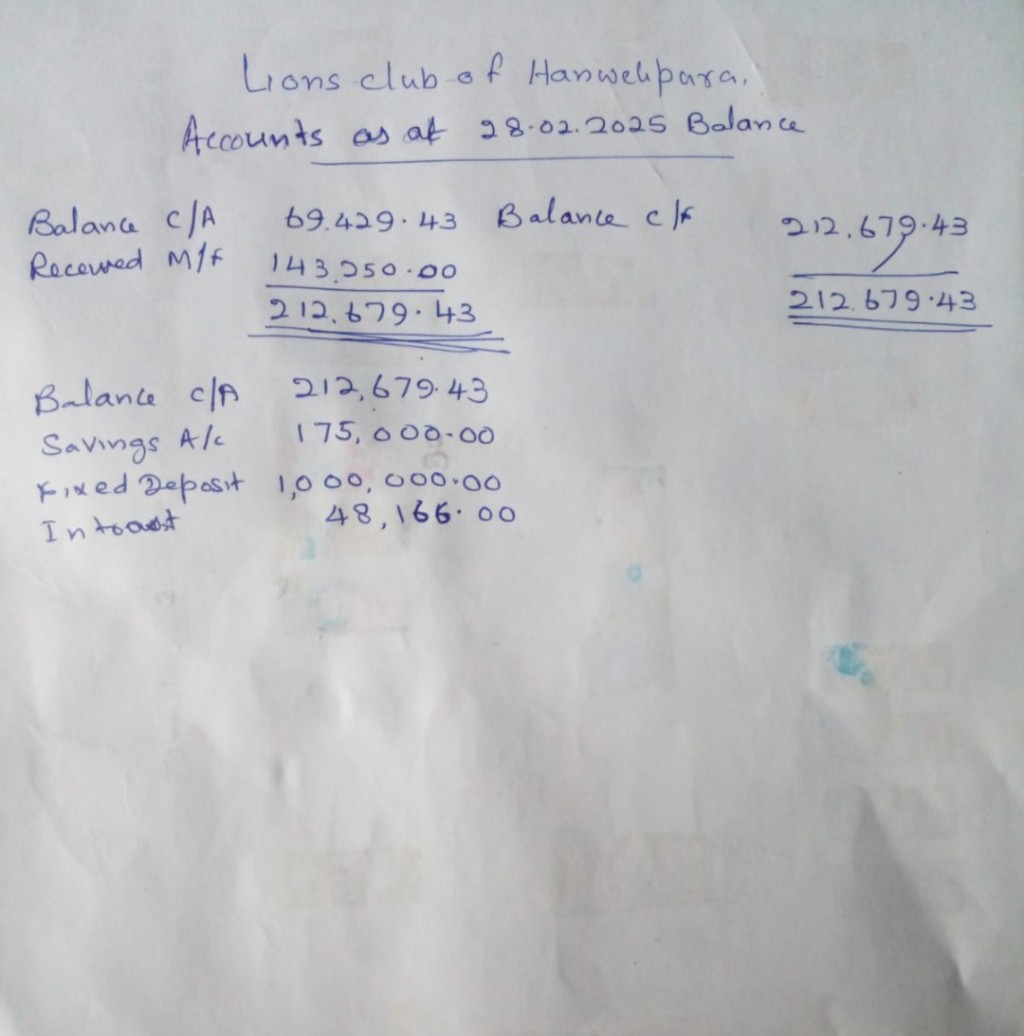 Lions club of Hanwellpura.
Accounts as at 28.02.2025 Balance
Balance C/A 69.429.43 Balance c/f 212,679.43
Received M/f 143,250.00
212,679.43 212.679.43
Balance C/A 212,679.43
Savings A/c 175,000.00
Fixed Deposit 1,000,000.00
48,166.00